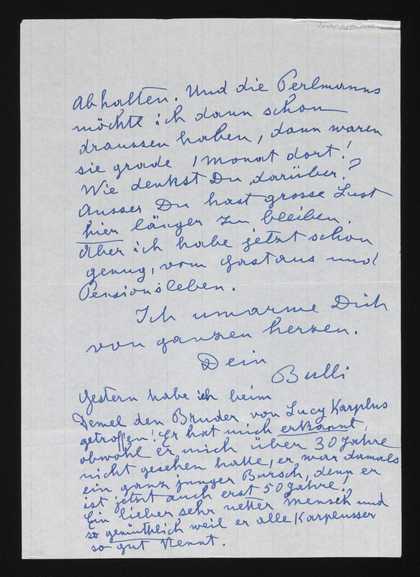 Abhalten. Und die Perlmanns
möchte ich dann schon
draussen haben, dann waren
sie grade 1 Monat dort!
Wie denkst Du darüber?
Ausser Du hast grosse Lust
hier länger zu bleiben.
Aber ich habe jetzt schon
genug, vom Gasthaus und
Pensionsleben.
Ich umarme Dich
von ganzen herzen.
Dein
Bulli
Gestern habe ich beim
Demel den Bruder von Lucy Karplus
getroffen! Er hat mich erkannt,
obwohl er mich über 30 Jahre
nicht gesehen hatte, er war damals
ein ganz junger Bursch, denn er
ist jetzt auch erst 50 Jahre!
Ein lieber sehr netter Mensch und
so gemütlich weil er alle Karplusser
so gut kennt.